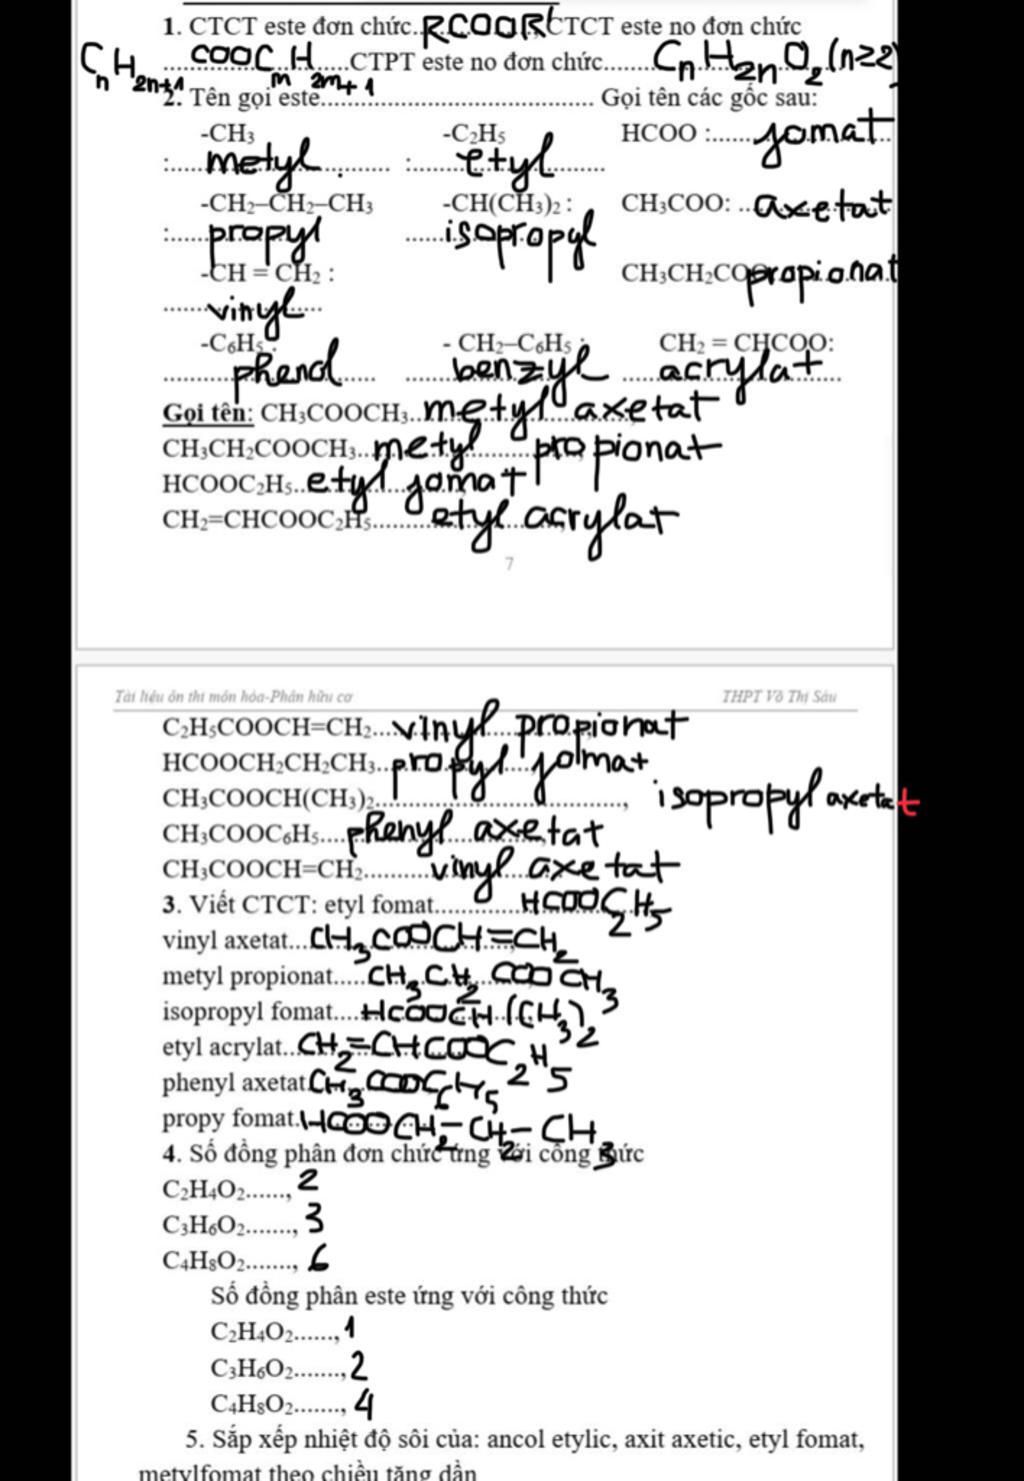 1. CTCT este đơn chức..RCOOR' CTCT este no đơn chức
CnH2n+1 COOCmH2m+1 .....CTPT este no đơn chức..... CnH2nO2 (n≥2)
2. Tên gọi este.......................................... Gọi tên các gốc sau:
-CH3 -C2H5 HCOO :...... fomat
:...... metyl ............ :...... etyl ........
-CH2–CH2–CH3 -CH(CH3)2 : CH3COO: ... axetat
:...... propyl ...... isopropyl
-CH = CH2 : CH3CH2CO propionat
...... vinyl ......
-C6H5 : - CH2–C6H5 : CH2 = CHCOO:
......... phenol ...... ...... benzyl ...... acrylat ...
Gọi tên: CH3COOCH3.. metyl axetat
CH3CH2COOCH3.. metyl propionat
HCOOC2H5.. etyl fomat
CH2=CHCOOC2H5......... etyl acrylat
7
Tài liệu ôn thi môn hóa-Phân hữu cơ THPT Võ Thị Sáu
C2H5COOCH=CH2... vinyl propionat
HCOOCH2CH2CH3.. propyl folmat
CH3COOCH(CH3)2......................................, isopropyl axetat t
CH3COOC6H5.... phenyl axetat
CH3COOCH=CH2.......... vinyl axetat
3. Viết CTCT: etyl fomat............ HCOOC2H5
vinyl axetat... CH3COOCH=CH2
metyl propionat..... CH3CH2COOCH3
isopropyl fomat.... HCOOCH(CH3)2
etyl acrylat.. CH2=CHCOOC2H5
phenyl axetat. CH3COOC6H5
propy fomat. HCOOCH2-CH2-CH3
4. Số đồng phân đơn chức ứng với công thức
C2H4O2......, 2
C3H6O2......., 3
C4H8O2......., 6
Số đồng phân este ứng với công thức
C2H4O2......, 1
C3H6O2......., 2
C4H8O2......., 4
5. Sắp xếp nhiệt độ sôi của: ancol etylic, axit axetic, etyl fomat,
metylfomat theo chiều tăng dần